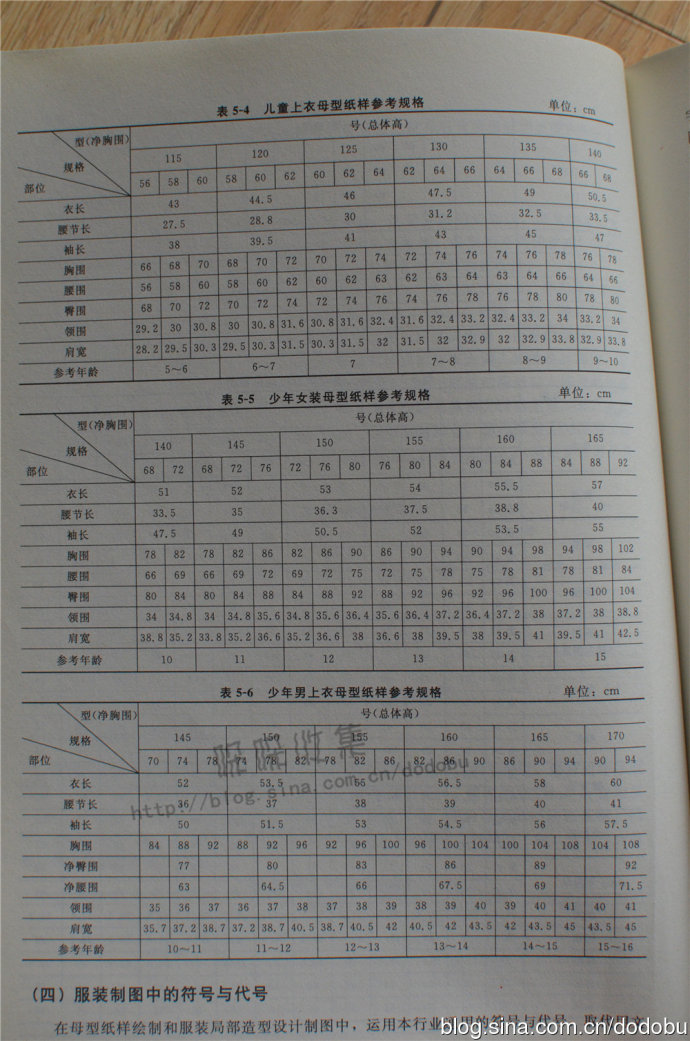 表 5-4 儿童上衣母型纸样参考规格 单位：cm
型(净胸围) 号(总体高)
规格 115 120 125 130 135 140
部位 56 58 60 58 60 62 60 62 64 62 64 66 64 66 68 66 68
衣长 43 44.5 46 47.5 49 50.5
腰节长 27.5 28.8 30 31.2 32.5 33.5
袖长 38 39.5 41 43 45 47
胸围 66 68 70 68 70 72 70 72 74 72 74 76 74 76 78 76 78
腰围 56 58 60 58 60 62 60 62 63 62 63 64 63 64 66 64 66
臀围 68 70 72 70 72 74 72 74 76 74 76 78 76 78 80 78 80
领围 29.2 30 30.8 30 30.8 31.6 30.8 31.6 32.4 31.6 32.4 33.2 32.4 33.2 34 33.2 34
肩宽 28.2 29.5 30.3 29.5 30.3 31.5 30.3 31.5 32 31.5 32 32.9 32 32.9 33.8 32.9 33.8
参考年龄 5～6 6～7 7 7～8 8～9 9～10
表 5-5 少年女装母型纸样参考规格 单位：cm
型(净胸围) 号(总体高)
规格 140 145 150 155 160 165
部位 68 72 68 72 76 72 76 80 76 80 84 80 84 88 84 88 92
衣长 51 52 53 54 55.5 57
腰节长 33.5 35 36.3 37.5 38.8 40
袖长 47.5 49 50.5 52 53.5 55
胸围 78 82 78 82 86 82 86 90 86 90 94 90 94 98 94 98 102
腰围 66 69 66 69 72 69 72 75 72 75 78 75 78 81 78 81 84
臀围 80 84 80 84 88 84 88 92 88 92 96 92 96 100 96 100 104
领围 34 34.8 34 34.8 35.6 34.8 35.6 36.4 35.6 36.4 37.2 36.4 37.2 38 37.2 38 38.8
肩宽 38.8 35.2 33.8 35.2 36.6 35.2 36.6 38 36.6 38 39.5 38 39.5 41 39.5 41 42.5
参考年龄 10 11 12 13 14 15
表 5-6 少年男上衣母型纸样参考规格 单位：cm
型(净胸围) 号(总体高)
规格 145 150 155 160 165 170
部位 70 74 78 74 78 82 78 82 86 82 86 90 86 90 94 90 94
衣长 52 53.5 55 56.5 58 60
腰节长 36 37 38 39 40 41
袖长 50 51.5 53 54.5 56 57.5
胸围 84 88 92 88 92 96 92 96 100 96 100 104 100 104 108 104 108
净臀围 77 80 83 86 89 92
净腰围 63 64.5 66 67.5 69 71.5
领围 35 36 37 36 37 38 37 38 39 38 39 40 39 40 41 40 41
肩宽 35.7 37.2 38.7 37.2 38.7 40.5 38.7 40.5 42 40.5 42 43.5 42 43.5 45 43.5 45
参考年龄 10～11 11～12 12～13 13～14 14～15 15～16
收集
http://blog.sina.com.cn/dodobu
(四) 服装制图中的符号与代号
在母型纸样绘制和服装局部造型设计制图中，运用本行业
blog.sina.com.cn/dodobu